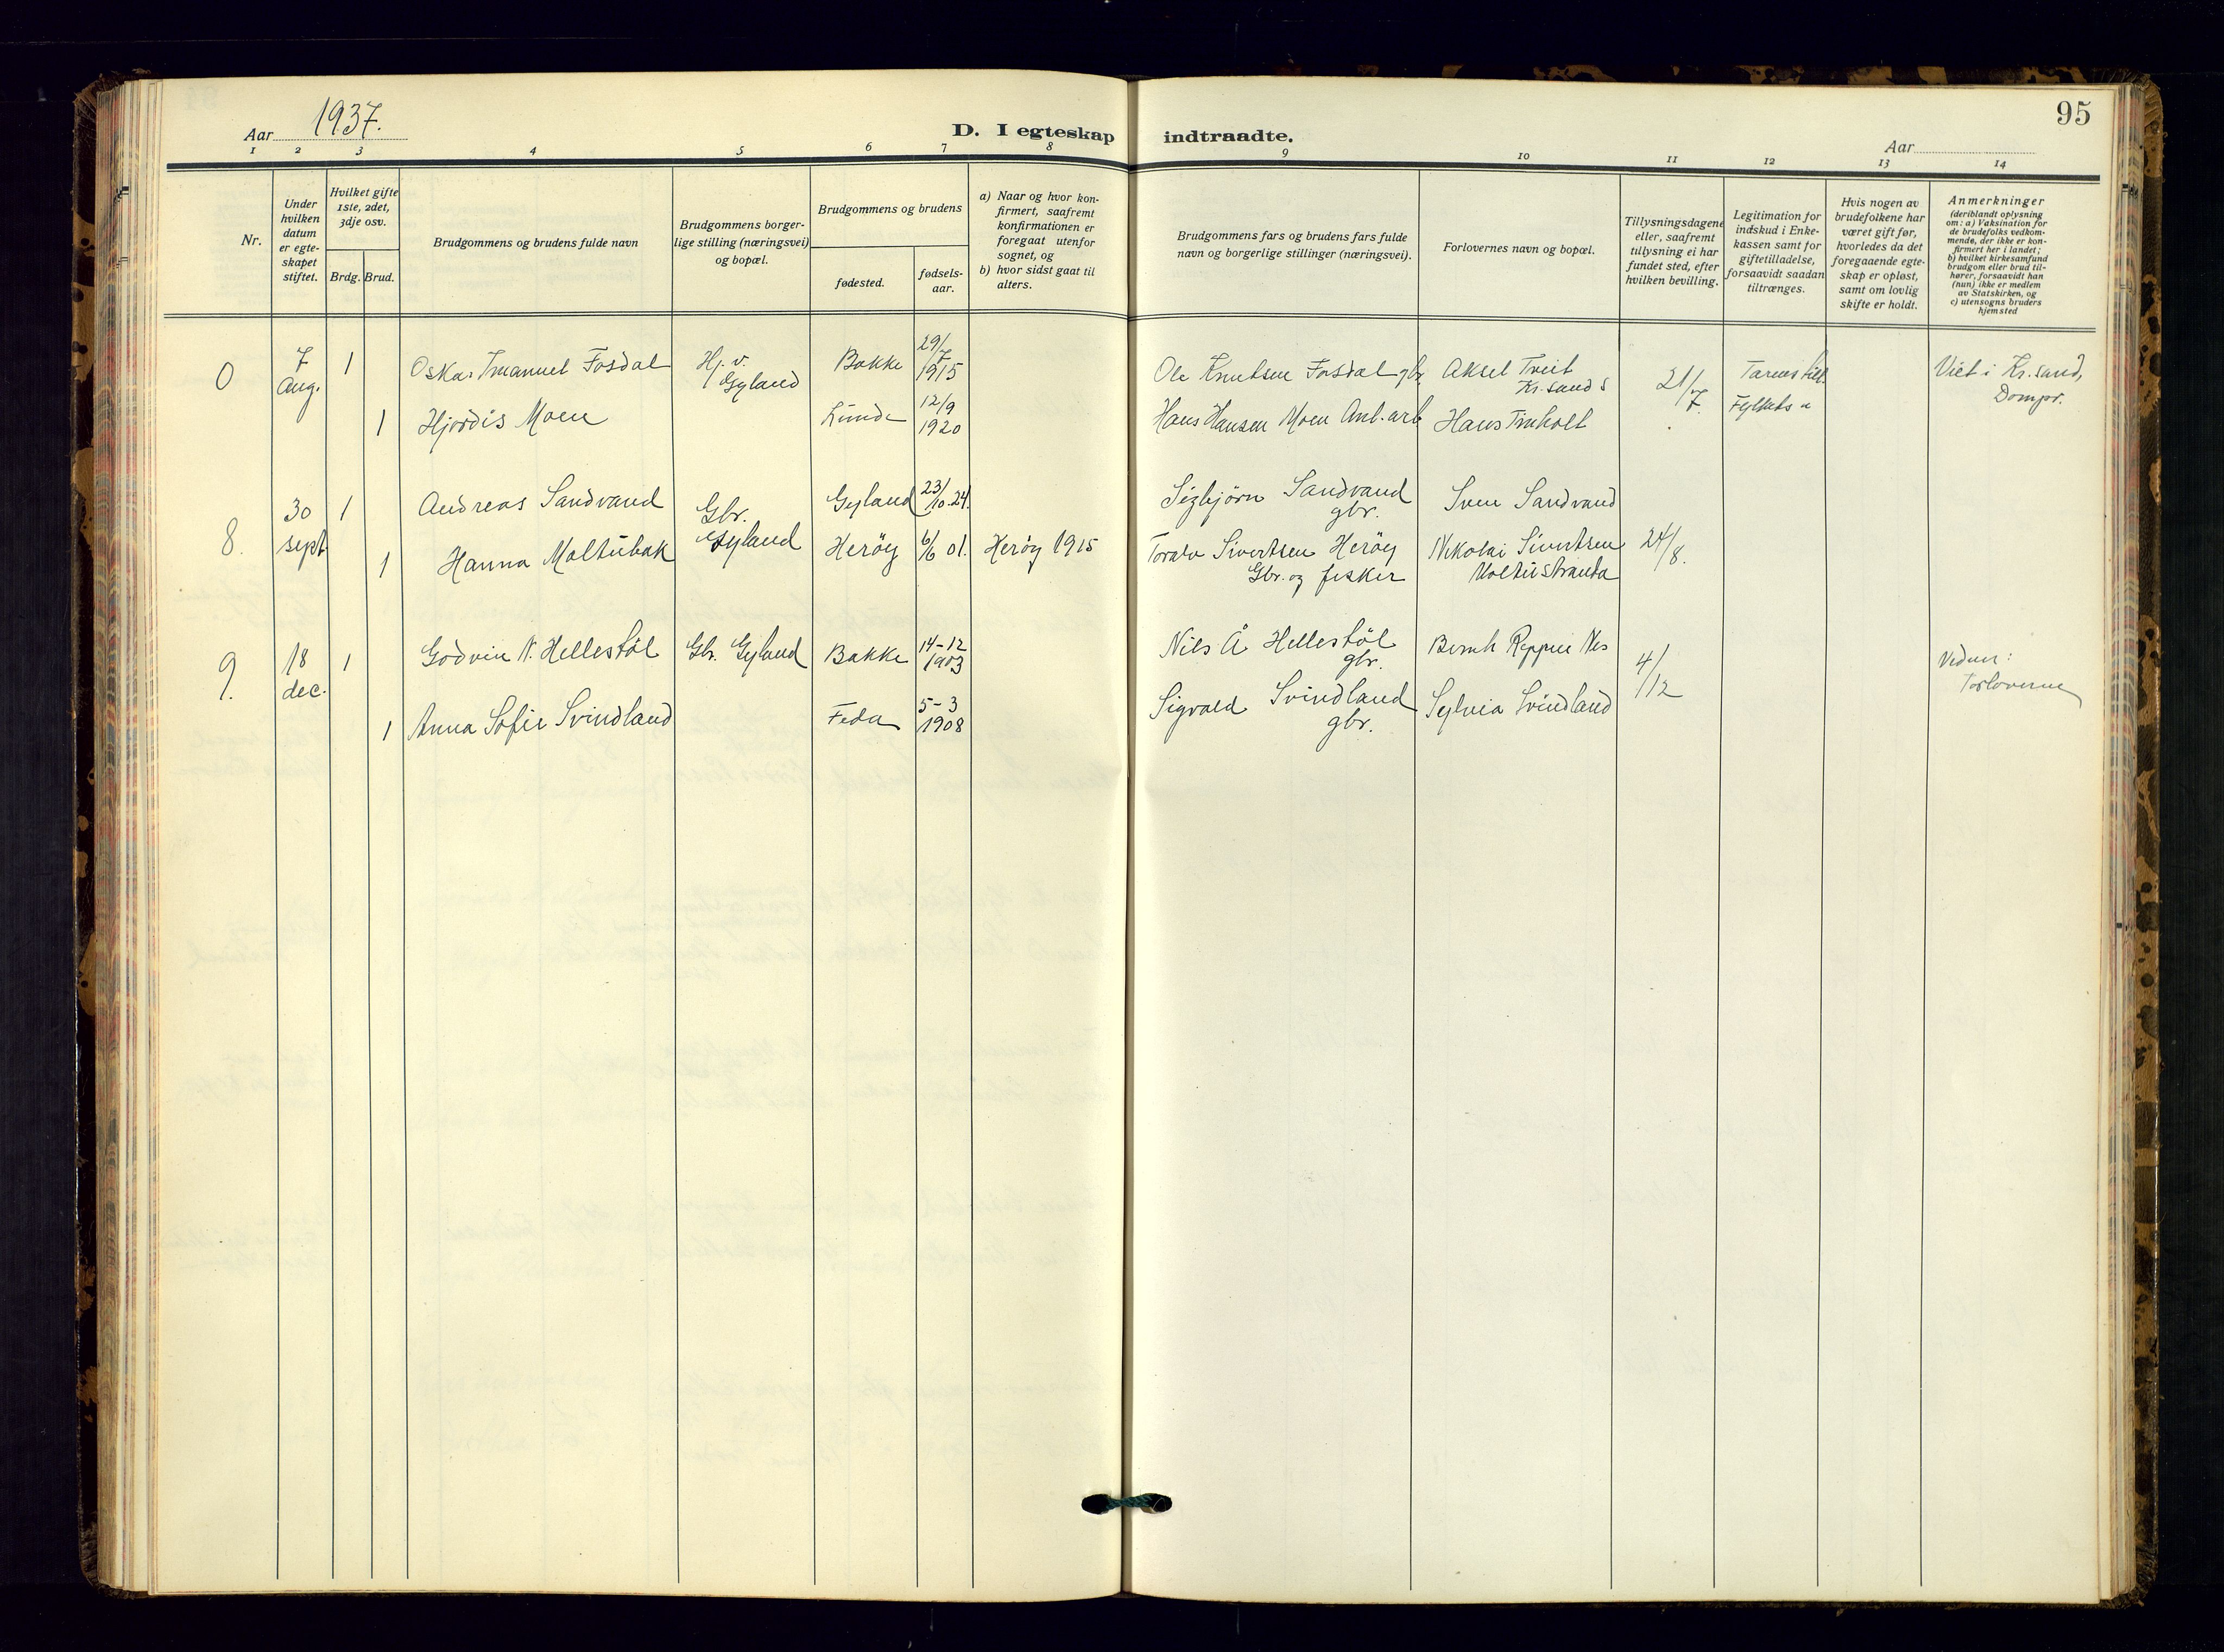 95
Aar 1937.
D. I egteskap indtraadte.
Aar
1 2 3 4 5 6 7 8 9 10 11 12 13 14
Nr.
Under
hvilken
datum
er egte-
skapet
stiftet.
Hvilket gifte
1ste, 2det,
3dje osv.
Brdg. Brud.
Brudgommens og brudens fulde navn
Brudgommens borger-
lige stilling (næringsvei)
og bopæl.
Brudgommens og brudens
fødested.
fødsels-
aar.
a) Naar og hvor kon-
firmert, saafremt
konfirmationen er
foregaat utenfor
sognet, og
b) hvor sidst gaat til
alters.
Brudgommens fars og brudens fars fulde
navn og borgerlige stillinger (næringsvei).
Forlovernes navn og bopæl.
Tillysningsdagene
eller, saafremt
tillysning ei har
fundet sted, efter
hvilken bevilling.
Legitimation for
indskud i Enke-
kassen samt for
giftetilladelse,
forsaavidt saadan
tiltrænges.
Hvis nogen av
brudefolkene har
været gift før,
hvorledes da det
foregaaende egte-
skap er opløst,
samt om lovlig
skifte er holdt.
Anmerkninger
(deriblandt oplysning
om: a) Vaksination for
de brudefolks vedkom-
mende, der ikke er kon-
firmert her i landet;
b) hvilket kirkesamfund
brudgom eller brud til-
hører, forsaavidt han
(hun) ikke er medlem
av Statskirken, og
c) utensogns bruders
hjemsted
0
7
Aug.
1
Oskar Imanuel Fosdal
Hj. v.
Gyland
Bakke
29/7
1915
Ole Knutsen Fosdal gbr.
Aksel Tveit
Kr. sand S
21/7.
Farens till.
Viet i Kr. sand,
Dompr.
1
Hjördis Moen
Lunde
12/9
1920
Hans Hansen Moen Anl. arb.
Hans
Fylkets
8.
30
sept
1
Andreas Sandvand
Gbr.
Gyland
Gyland
23/10-24.
Sigbjörn Sandvand
gbr.
Sven Sandvand
24/8.
1
Hanna Moltubak
Heröy
6/6 01.
Heröy 1915
Toralv Sivertsen Heröy
Gbr. og fisker
Nikolai Sivertsen
Moltustranda
9.
18
dec.
1
Godvin N. Hellestöl
Gbr. Gyland
Bakke
14-12
1903
Nils Å Hellestöl
gbr.
Bernh Reppen Nes
4/12
Vidner:
Forloverne
1
Anna Sofie Svindland
Feda
5-3
1908
Sigvald Svindland
gbr.
Sylvia Svindland